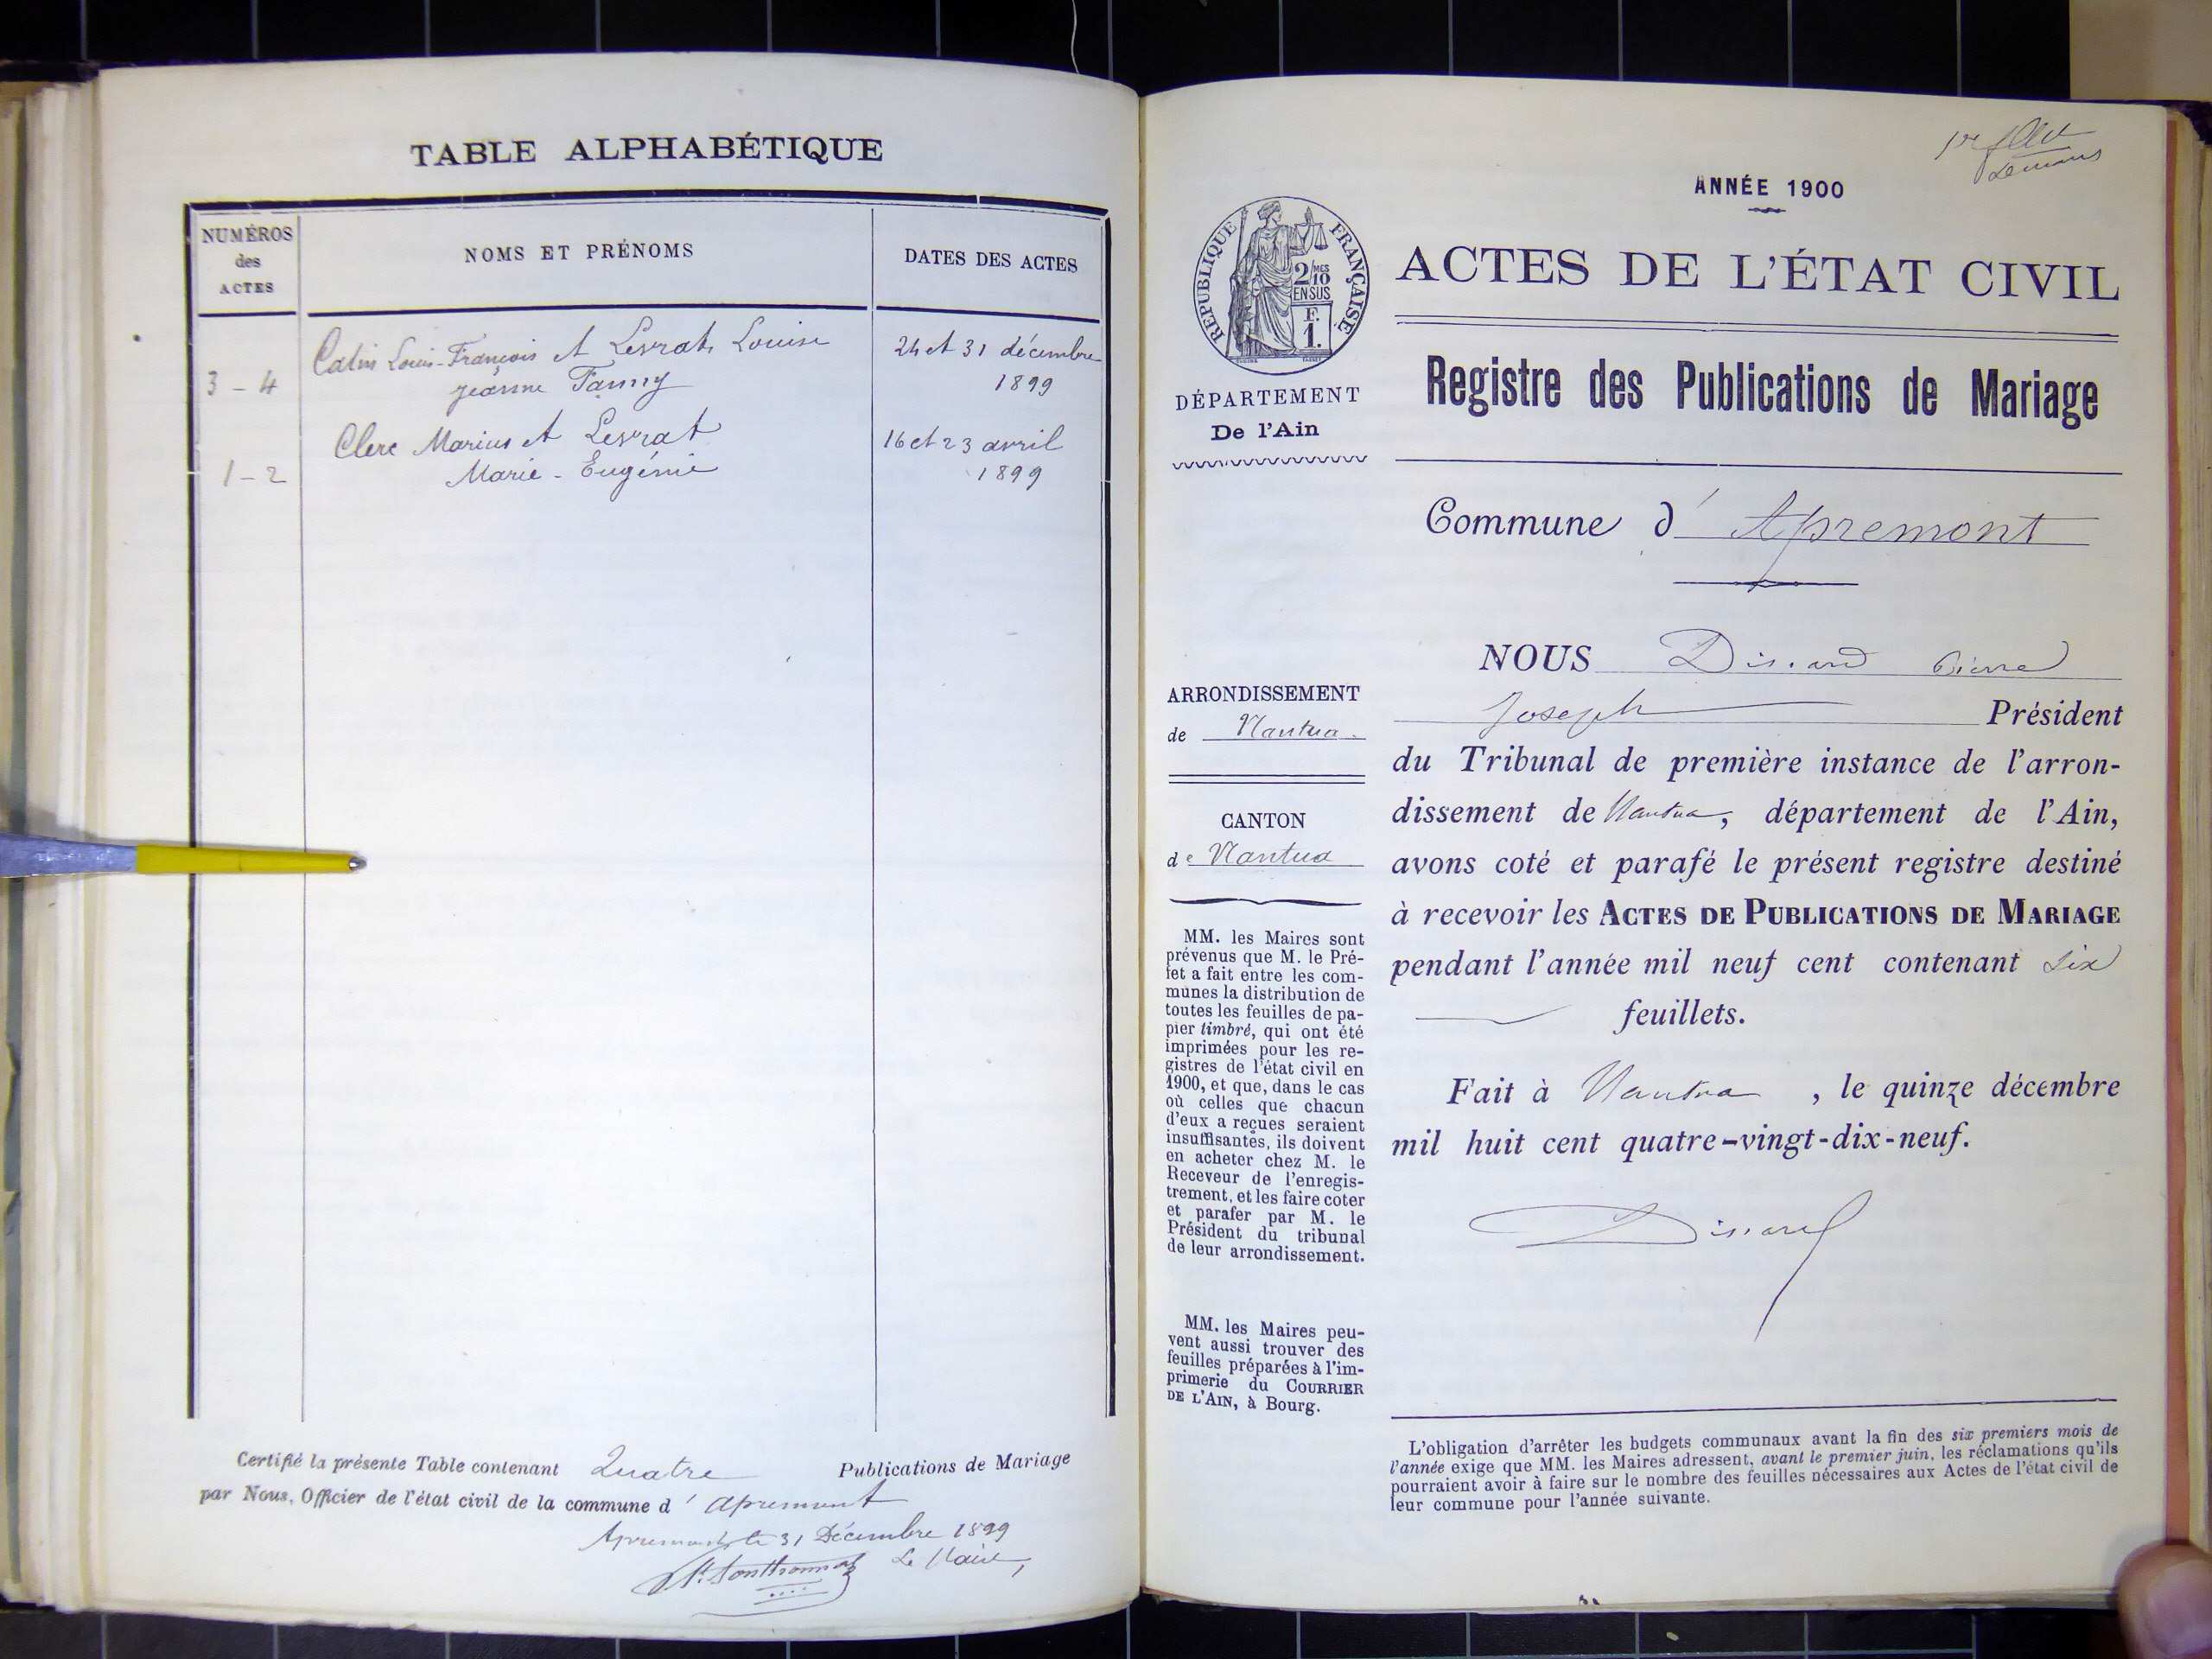 TABLE ALPHABÉTIQUE
NUMÉROS
des
ACTES
NOMS ET PRÉNOMS
DATES DES ACTES
3 - 4
Catin Louis-François et Levrat Louise
Jeanne Fanny
24 et 31 décembre
1899
1 - 2
Clerc Marius et Levrat
Marie - Eugénie
16 et 23 avril
1899
Certifié la présente Table contenant Quatre Publications de Mariage
par Nous, Officier de l'état civil de la commune d' Apremont
Apremont le 31 Décembre 1899
Le Maire,
1er
ANNÉE 1900
RÉPUBLIQUE FRANÇAISE
2/10 MES
EN SUS
F.
1.
ACTES DE L'ÉTAT CIVIL
Registre des Publications de Mariage
DÉPARTEMENT
De l'Ain
Commune d' Apremont
ARRONDISSEMENT
de Nantua
CANTON
de Nantua
MM. les Maires sont
prévenus que M. le Pré-
fet a fait entre les com-
munes la distribution de
toutes les feuilles de pa-
pier timbré, qui ont été
imprimées pour les re-
gistres de l'état civil en
1900, et que, dans le cas
où celles que chacun
d'eux a reçues seraient
insuffisantes, ils doivent
en acheter chez M. le
Receveur de l'enregis-
trement, et les faire coter
et parafer par M. le
Président du tribunal
de leur arrondissement.
MM. les Maires peu-
vent aussi trouver des
feuilles préparées à l'im-
primerie du COURRIER
DE L'AIN, à Bourg.
NOUS Dissard Pierre
Joseph Président
du Tribunal de première instance de l'arron-
dissement de Nantua, département de l'Ain,
avons coté et parafé le présent registre destiné
à recevoir les ACTES DE PUBLICATIONS DE MARIAGE
pendant l'année mil neuf cent contenant six
feuillets.
Fait à Nantua, le quinze décembre
mil huit cent quatre-vingt-dix-neuf.
Dissard
L'obligation d'arrêter les budgets communaux avant la fin des six premiers mois de
l'année exige que MM. les Maires adressent, avant le premier juin, les réclamations qu'ils
pourraient avoir à faire sur le nombre des feuilles nécessaires aux Actes de l'état civil de
leur commune pour l'année suivante.